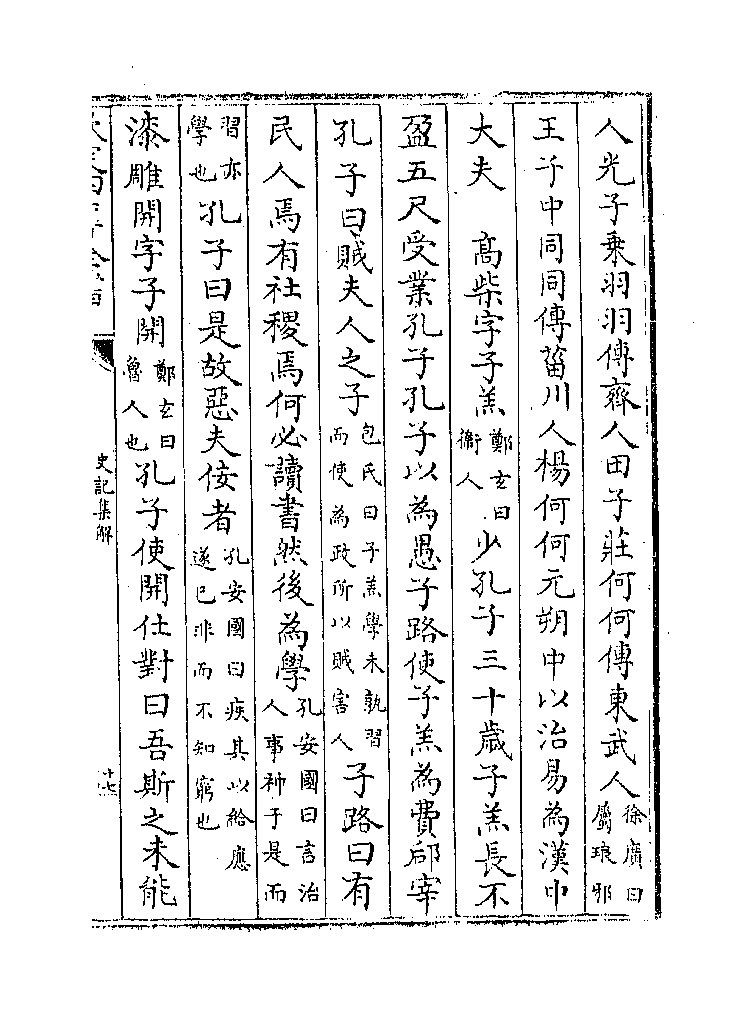 人光子乗羽羽傳齊人田子莊何何傳東武人徐廣曰屬琅邪
王子中同同傳菑川人楊何何元朔中以治易為漢中
大夫　高柴字子羔鄭玄曰衞人少孔子三十歲子羔長不
盈五尺受業孔子孔子以為愚子路使子羔為費郈宰
孔子曰賊夫人之子包氏曰子羔學未孰習而使為政所以賊害人子路曰有
民人焉有社稷焉何必讀書然後為學孔安國曰言治人事神于是而
習亦學也孔子曰是故惡夫佞者孔安國曰疾其以給應遂已非而不知窮也
漆雕開字子開鄭玄曰魯人也孔子使開仕對曰吾斯之未能
史記集解
十七